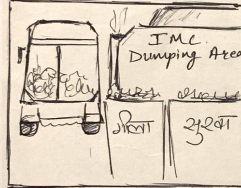 IMC
Dumping Area
गीला
सुखा